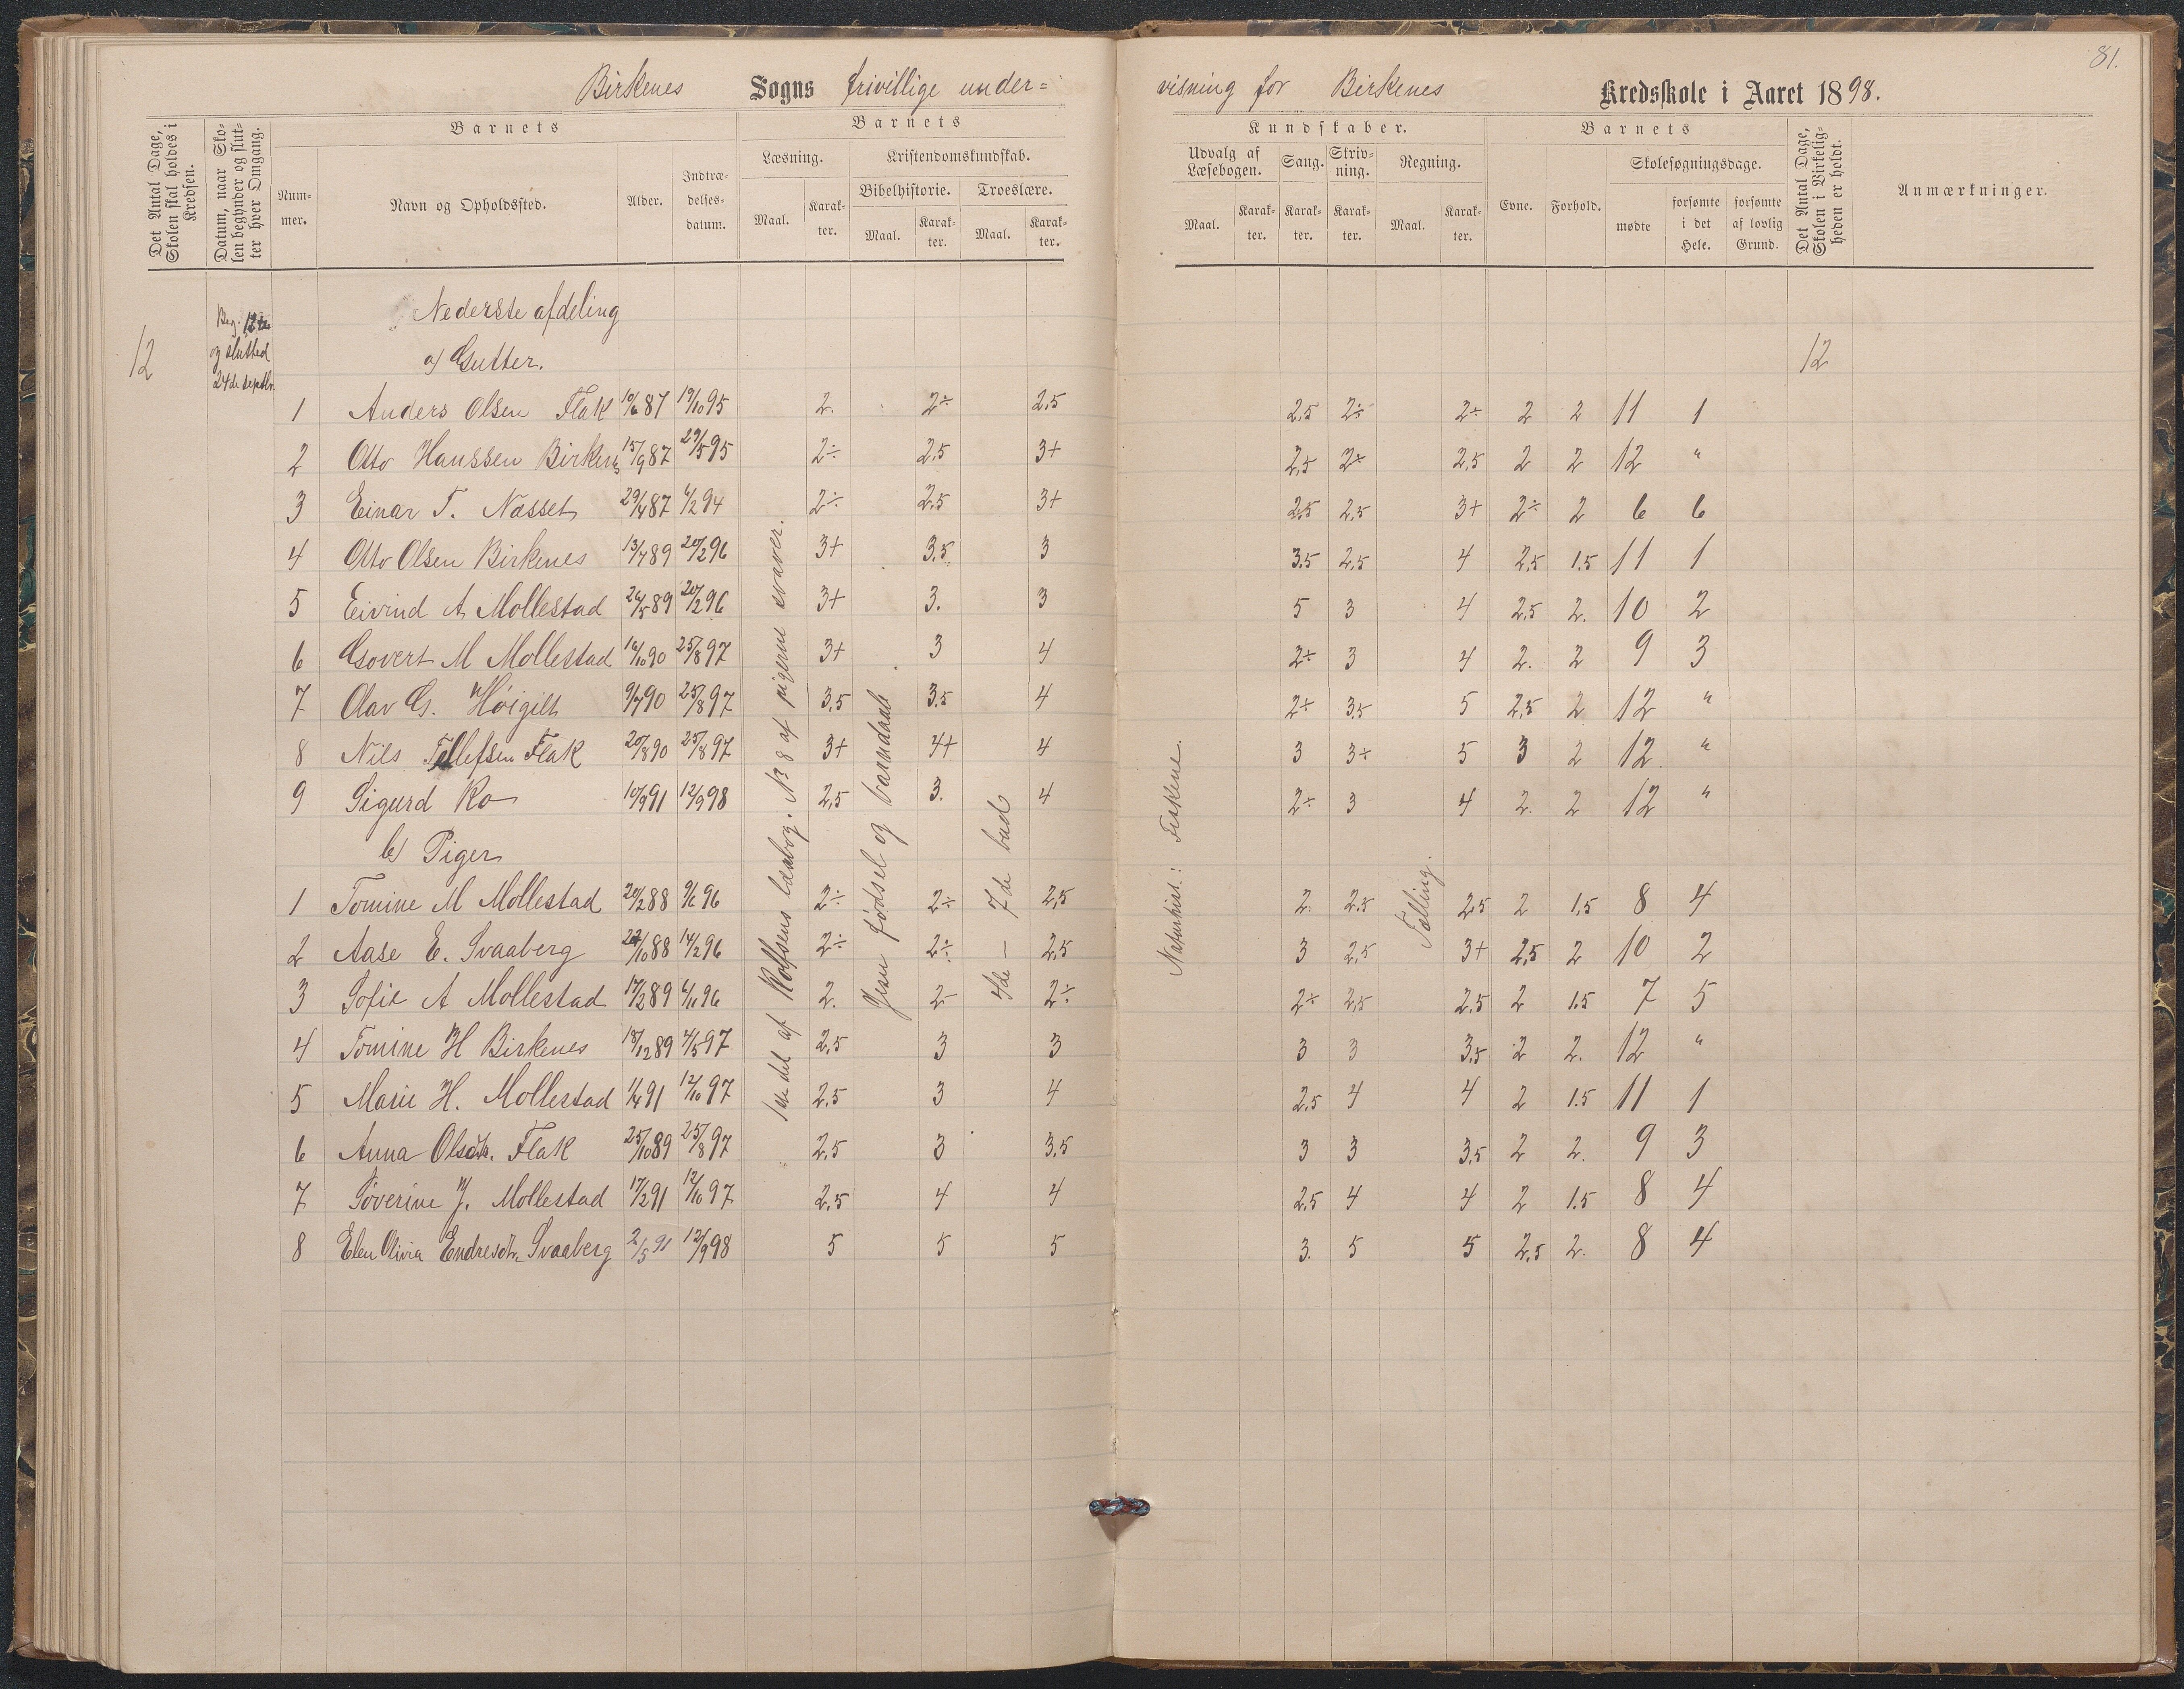 81.
Birkenes Sogns frivillige under= visning for Birkenes Kredsskole i Aaret 1898.
Det Antal Dage, Skolen skal holdes i Kredsen.
Datum, naar Skolen begynder og slutter hver Omgang.
Barnets
Nummer.
Navn og Opholdssted.
Alder.
Indtrædelsesdatum.
Barnets
Læsning.
Kristendomskundskab.
Bibelhistorie.
Troeslære.
Maal. Karakter. Maal. Karakter. Maal. Karakter.
Kundskaber.
Udvalg af Læsebogen.
Sang.
Skrivning.
Regning.
Maal. Karakter. Karakter. Karakter. Maal. Karakter.
Barnets
Evne. Forhold.
Skolesøgningsdage.
mødte
forsømte i det Hele.
forsømte af lovlig Grund.
Det Antal Dage, Skolen i Virkeligheden er holdt.
Anmærkninger.
12
Beg. 12te
og slutted
24de septbr.
Nederste afdeling
a) Gutter.
12
1 Anders Olsen Flak 10/6 87 19/10 95 2. 2÷ 2,5 2,5 2÷ 2÷ 2 2 11 1
2 Otto Hanssen Birkenes 15/9 87 29/5 95 2÷ 2,5 3+ 2,5 2÷ 2,5 2 2 12 "
3 Einar T. Næsset 29/4 87 6/2 94 2÷ 2,5 3+ 2,5 2,5 3+ 2÷ 2 6 6
4 Otto Olsen Birkenes 13/7 89 20/2 96 3+ 3,5 3 3,5 2,5 4 2,5 1.5 11 1
5 Eivind A Mollestad 26/5 89 20/2 96 3+ 3. 3 5 3 4 2,5 2. 10 2
6 Govert M Mollestad 16/10 90 25/8 97 3+ 3 4 2÷ 3 4 2. 2 9 3
7 Olav G. Høigilt 9/7 90 25/8 97 3,5 3.5 4 2÷ 3,5 5 2,5 2 12 "
8 Nils Tellefsen Flak 20/8 90 25/8 97 3+ 4+ 4 3 3+ 5 3 2 12. "
9 Sigurd Ro 10/9 91 12/9 98 2,5 3. 4 2÷ 3 4 2. 2 12 "
b) Piger
1 Tomine M Mollestad 20/2 88 9/6 96 2÷ 2÷ 2,5 2. 2.5 2,5 2 1,5 8 4
2 Aase E. Svaaberg 22/10 88 14/2 96 2÷ 2÷ 2,5 3 2,5 3+ 2,5 2 10 2
3 Sofie A Mollestad 17/2 89 6/11 96 2. 2- 2÷ 2÷ 2,5 2,5 2 1.5 7 5
4 Tomine H Birkenes 18/12 89 4/5 97 2,5 3 3 3 3 3,5 2 2. 12 "
5 Marie H. Mollestad 1/4 91 12/10 97 2,5 3 4 2,5 4 4 2 1.5 11 1
6 Anna Olsdtr. Flak 25/10 89 25/8 97 2,5 3 3,5 3 3 3,5 2 2. 9 3
7 Søverine J. Mollestad 17/2 91 12/10 97 2,5 4 4 2,5 4 4 2 1.5 8 4
8 Elen Olivia Endresdtr. Svaaberg 2/5 91 12/9 98 5 5 5 3. 5 5 2,5 2. 8 4
1ste del af Rolfsens læsebog. No 8 af pigerne svaver.
Jesu fødsel og barndaab
7de bud
4de —
Naturhist.: Fiskene.
Tælling.